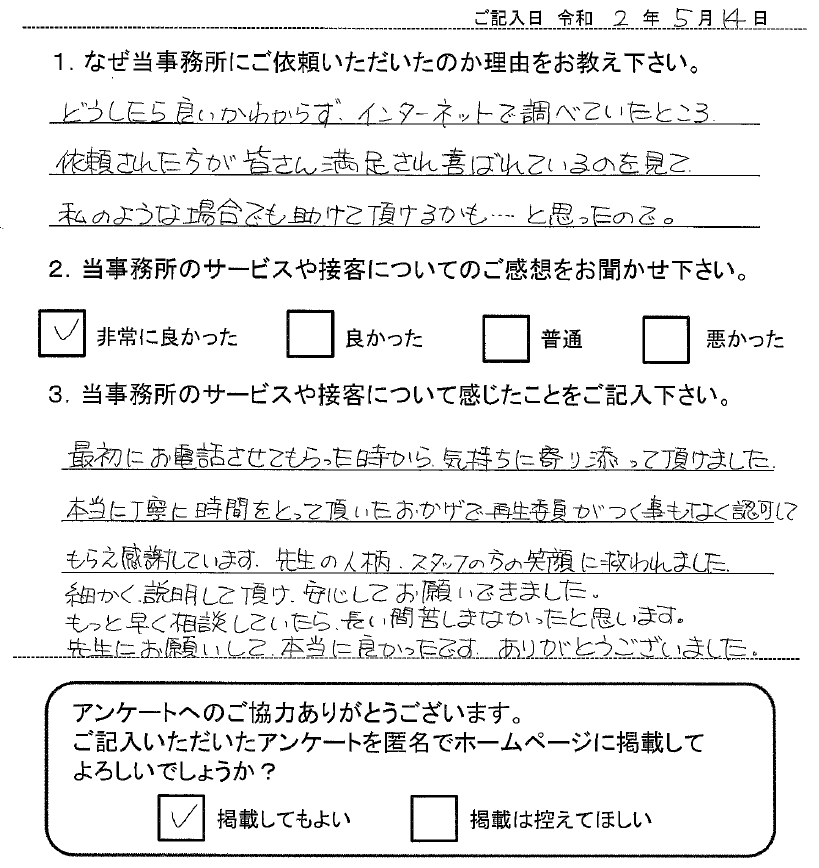 ご記入日 令和 2 年 5 月 14 日
1. なぜ当事務所にご依頼いただいたのか理由をお教え下さい。
どうしたら良いかわからず、インターネットで調べていたところ、
依頼された方が皆さん満足され喜ばれているのを見て、
私のような場合でも助けて頂けるかも…と思ったので。
2. 当事務所のサービスや接客についてのご感想をお聞かせ下さい。
✓ 非常に良かった 良かった 普通 悪かった
3. 当事務所のサービスや接客について感じたことをご記入下さい。
最初にお電話させてもらった時から、気持ちに寄り添って頂けました。
本当に丁寧に時間をとって頂いたおかげで再生委員がつく事もなく認可して
もらえ感謝しています。先生の人柄、スタッフの方の笑顔に救われました。
細かく、説明して頂け、安心してお願いできました。
もっと早く相談していたら、長い間苦しまなかったと思います。
先生にお願いして、本当に良かったです。ありがとうございました。
アンケートへのご協力ありがとうございます。
ご記入いただいたアンケートを匿名でホームページに掲載して
よろしいでしょうか?
✓ 掲載してもよい 掲載は控えてほしい